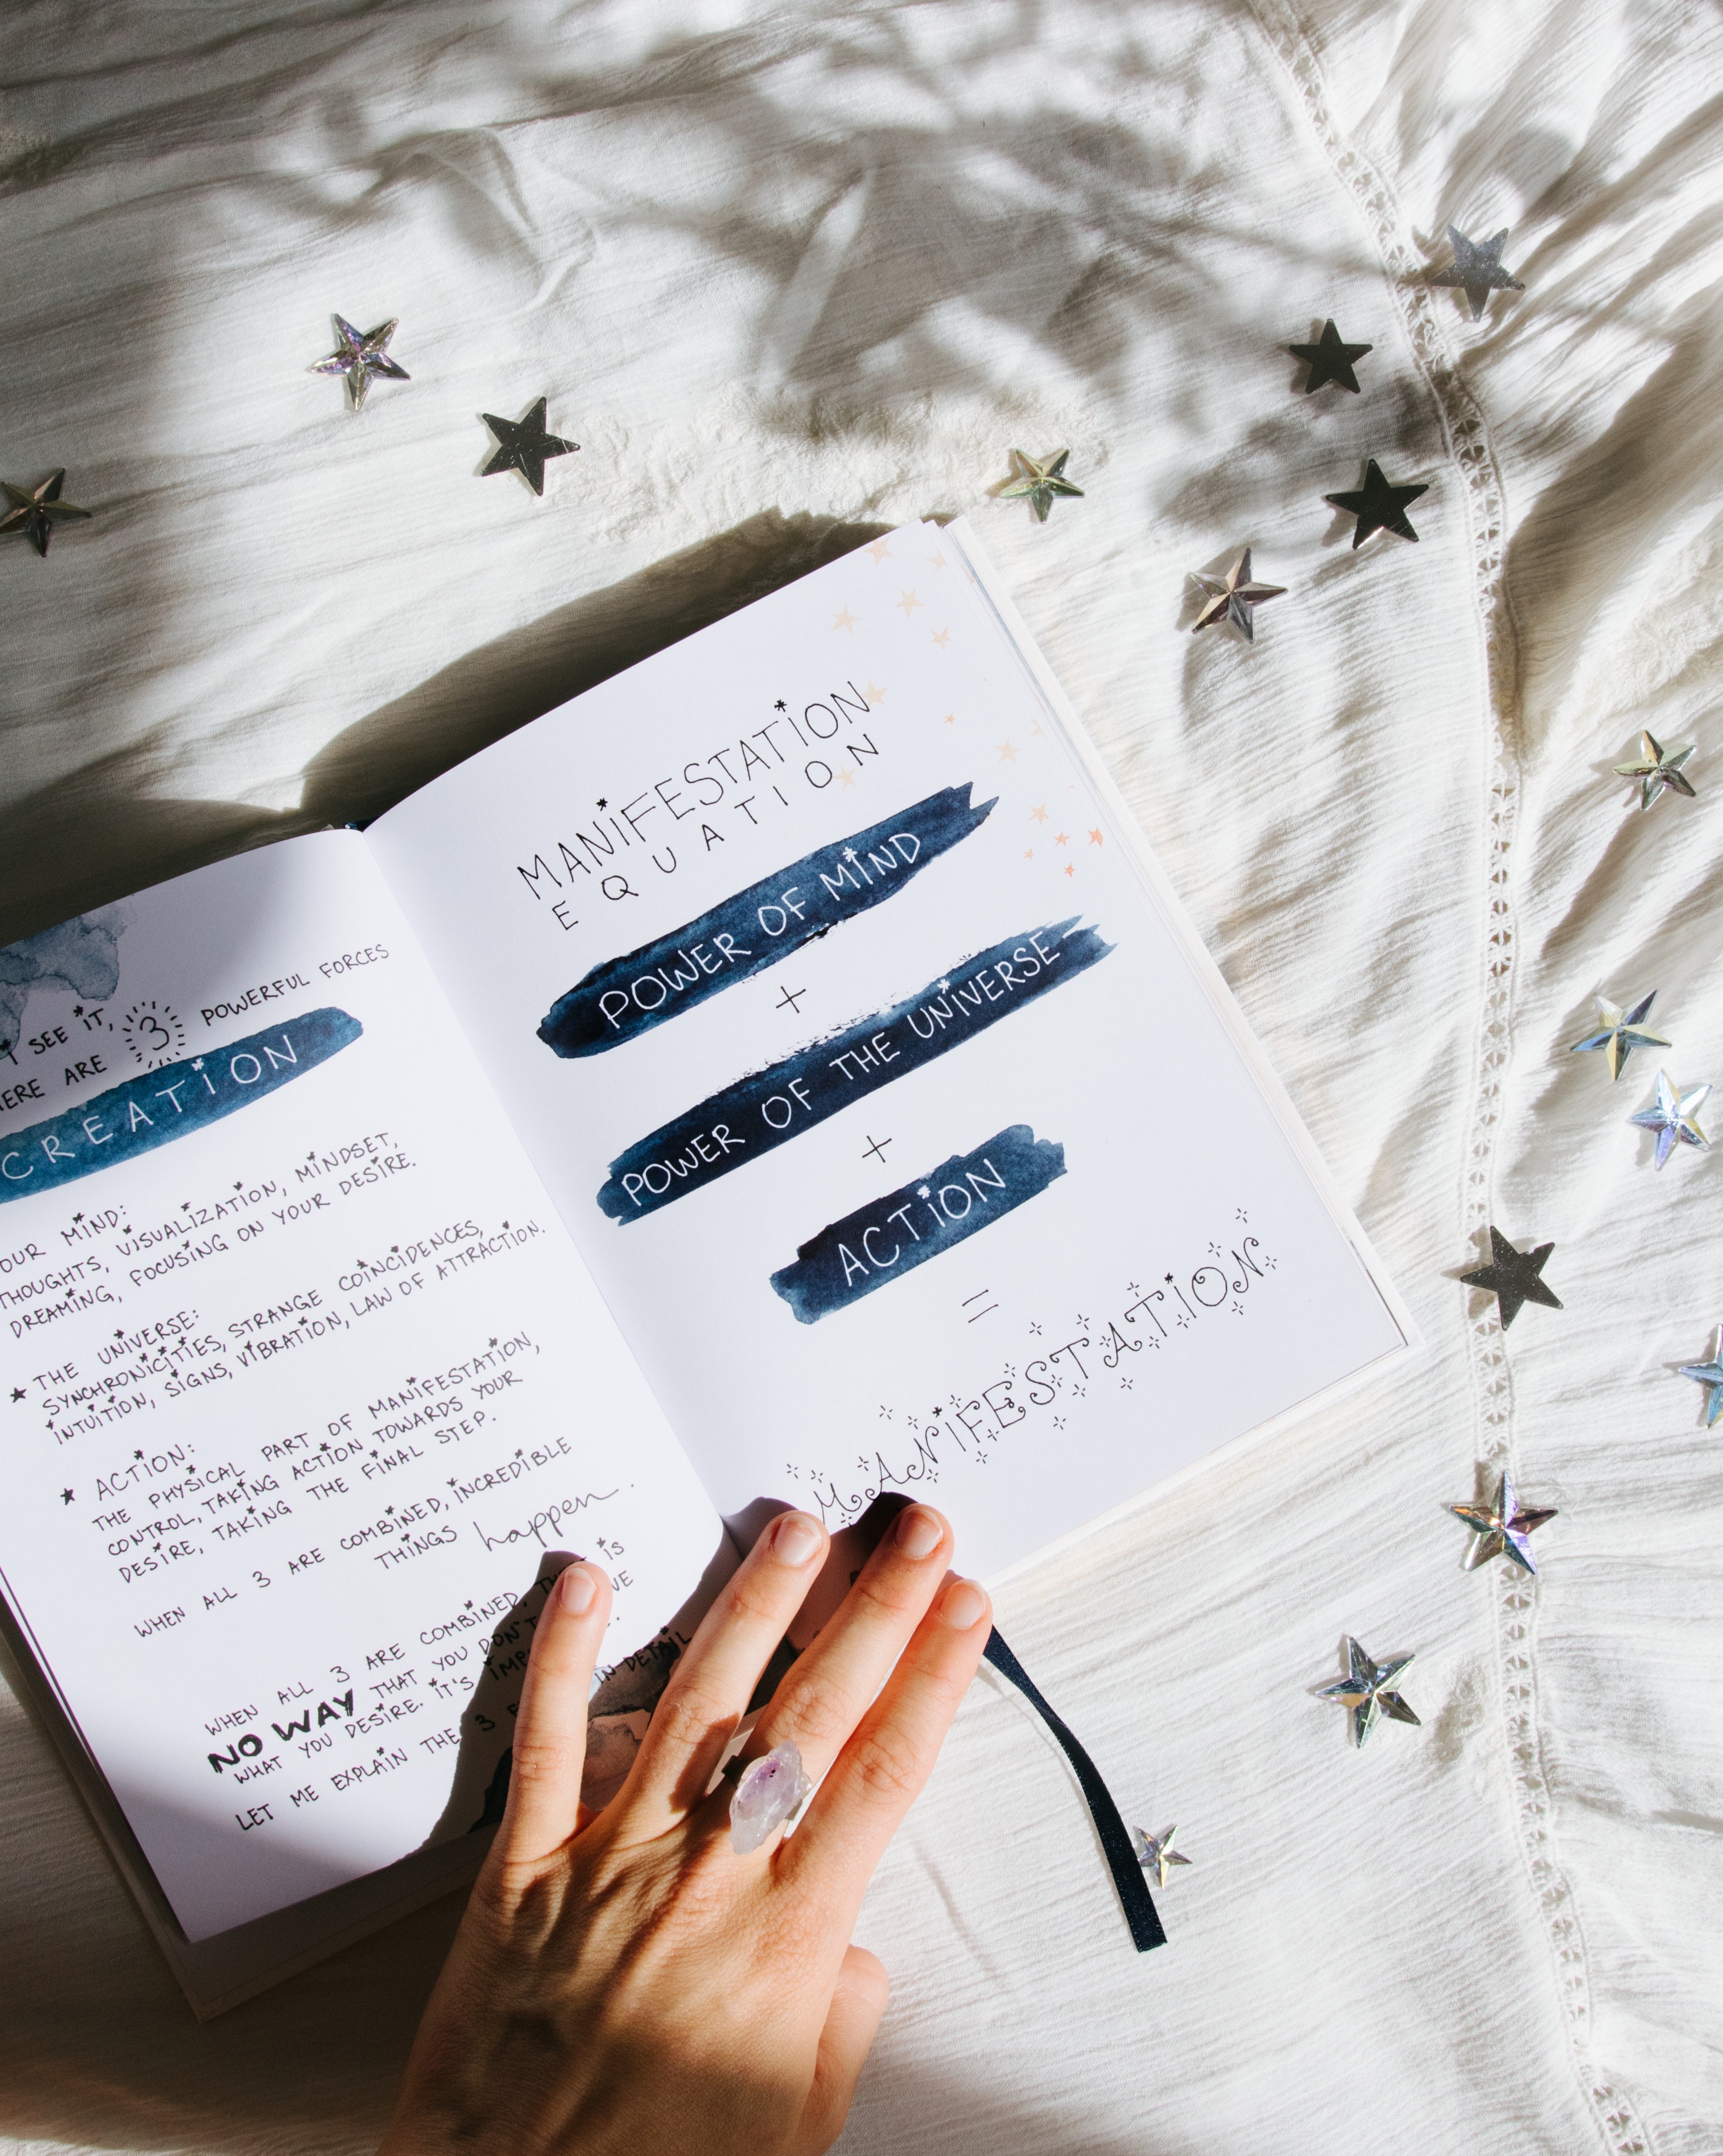 I SEE IT,
ERE ARE 3 POWERFUL FORCES
CREATION
OUR MIND:
THOUGHTS, VISUALIZATION, MINDSET,
DREAMING, FOCUSING ON YOUR DESIRE.
★ THE UNIVERSE:
SYNCHRONICITIES, STRANGE COINCIDENCES,
INTUITION, SIGNS, VIBRATION, LAW OF ATTRACTION.
★ ACTION:
THE PHYSICAL PART OF MANIFESTATION,
CONTROL, TAKING ACTION TOWARDS YOUR
DESIRE, TAKING THE FINAL STEP.
WHEN ALL 3 ARE COMBINED, INCREDIBLE
THINGS happen.
WHEN ALL 3 ARE COMBINED, IS
NO WAY THAT YOU DON'T VE
WHAT YOU DESIRE. IT'S
LET ME EXPLAIN THE 3 IN DETAIL
MANIFESTATION
EQUATION
POWER OF MIND
+
POWER OF THE UNIVERSE
+
ACTION
=
MANIFESTATION